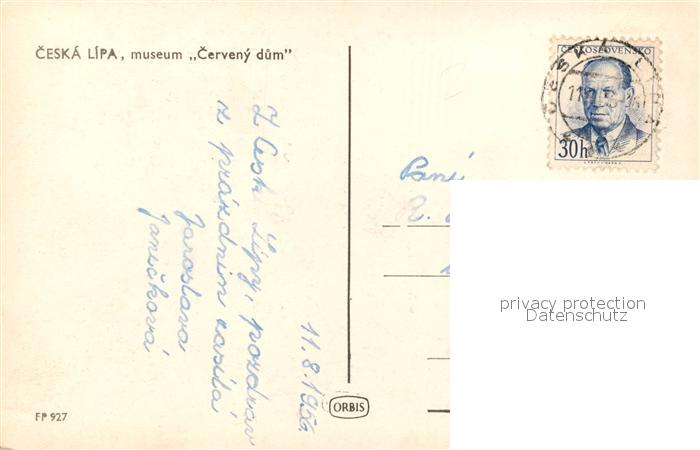 ČESKÁ LÍPA, museum „Červený dům"
ČESKOSLOVENSKO
30h
11.8.1956
Z České Lípy, pozdrav
z prázdnin zasílá
Jaroslava
Janíčková
Paní
privacy protection
Datenschutz
ORBIS
FP 927